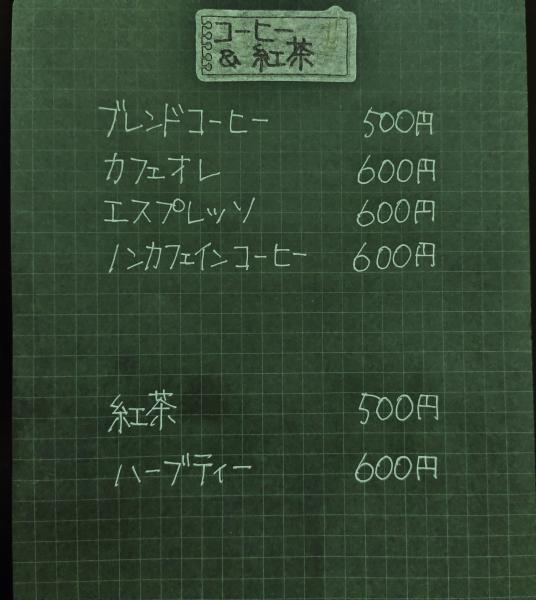 コーヒー
& 紅茶
ブレンドコーヒー 500円
カフェオレ 600円
エスプレッソ 600円
ノンカフェインコーヒー 600円
紅茶 500円
ハーブティー 600円